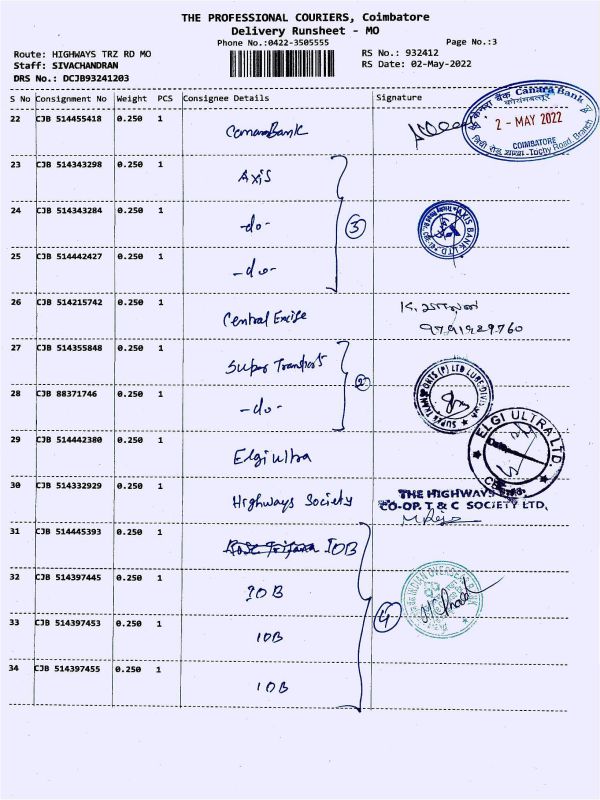 THE PROFESSIONAL COURIERS, Coimbatore
Delivery Runsheet - MO
Phone No.:0422-3505555 Page No.:3
Route: HIGHWAYS TRZ RD MO RS No.: 932412
Staff: SIVACHANDRAN RS Date: 02-May-2022
DRS No.: DCJB93241203
S No Consignment No Weight PCS Consignee Details Signature
22 CJB 514455418 0.250 1 Canara Bank
केनरा बैंक Canara Bank
2 - MAY 2022
COIMBATORE
Trichy Road, Branch
23 CJB 514343298 0.250 1 Axis
24 CJB 514343284 0.250 1 -do- 3
AXIS BANK LTD
25 CJB 514442427 0.250 1 -do-
26 CJB 514215742 0.250 1 Central Excise
27 CJB 514355848 0.250 1 Super Transports 2
SUPER TRANSPORTS (P) LTD LUBE-DIVISION
28 CJB 88371746 0.250 1 -do-
29 CJB 514442380 0.250 1 Elgi ultra
ELGI ULTRA LTD.
30 CJB 514332929 0.250 1 Highways Society
THE HIGHWAYS
CO-OP. T. & C SOCIETY LTD,
31 CJB 514445393 0.250 1 IOB
32 CJB 514397445 0.250 1 IOB
INDIAN OVERSEAS BANK
33 CJB 514397453 0.250 1 IOB 4
34 CJB 514397455 0.250 1 IOB